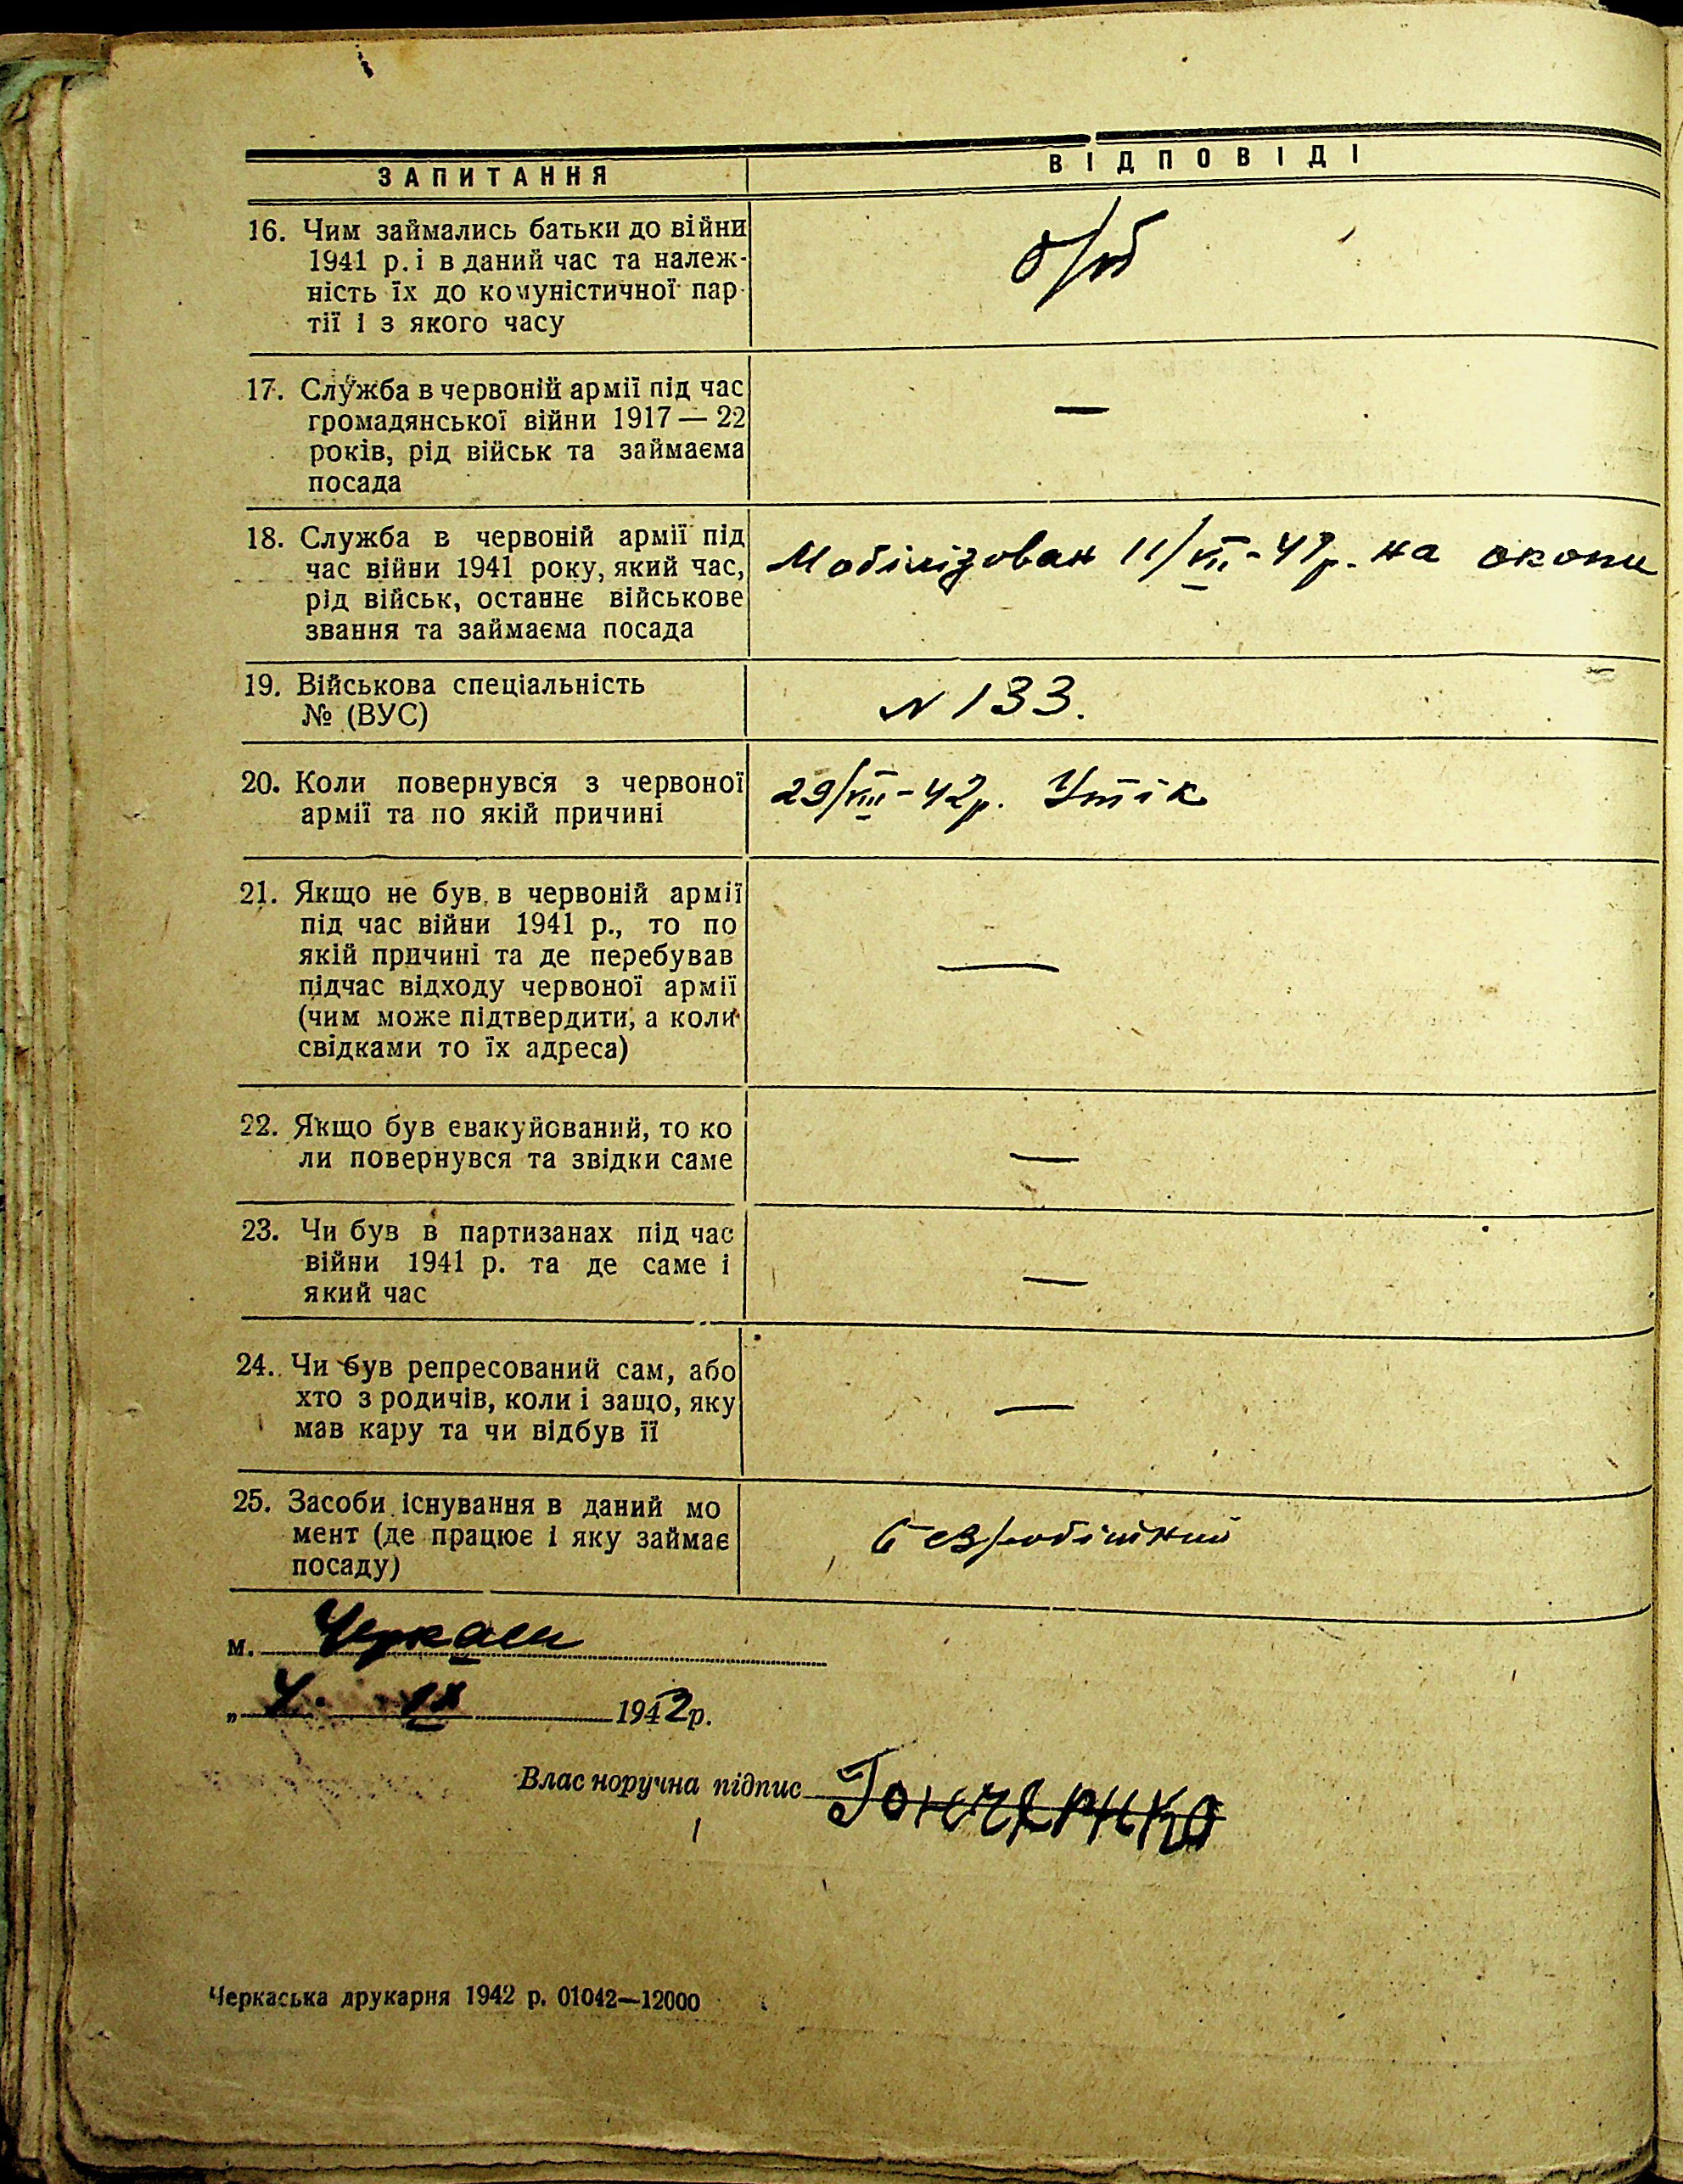 ЗАПИТАННЯ ВІДПОВІДІ
16. Чим займались батьки до війни
1941 р. і в даний час та належ-
ність їх до комуністичної пар-
тії і з якого часу
б/п
17. Служба в червоній армії під час
громадянської війни 1917 — 22
років, рід військ та займаєма
посада
—
18. Служба в червоній армії під
час війни 1941 року, який час,
рід військ, останнє військове
звання та займаєма посада
Мобілізован 11/VII-41р. на окопи
19. Військова спеціальність
№ (ВУС)
N 133.
20. Коли повернувся з червоної
армії та по якій причині
29/VIII-42р. Утік
21. Якщо не був в червоній армії
під час війни 1941 р., то по
якій причині та де перебував
підчас відходу червоної армії
(чим може підтвердити, а коли
свідками то їх адреса)
—
22. Якщо був евакуйований, то ко
ли повернувся та звідки саме
—
23. Чи був в партизанах під час
війни 1941 р. та де саме і
який час
—
24. Чи був репресований сам, або
хто з родичів, коли і защо, яку
мав кару та чи відбув її
—
25. Засоби існування в даний мо
мент (де працює і яку займає
посаду)
безробітний
м. Черкаси
„ 4. IX 1942р.
Власноручна підпис Гончаренко
Черкаська друкарня 1942 р. 01042—12000